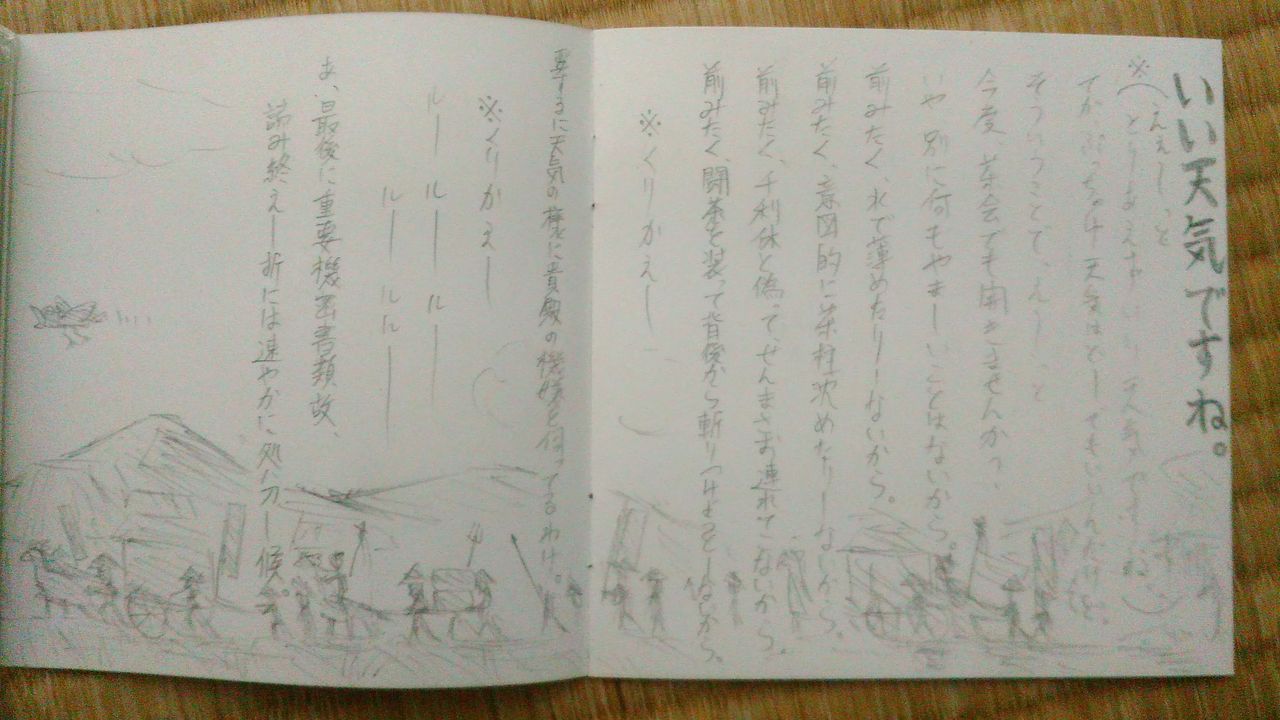 いい天気ですね。
※(ええーっと
とりあえずいい天気ですね)
てか、ぶっちゃけ天気はどーでもいーんだけど。
そういうことで、えーーっと
今度、茶会でも開きませんか?、
いや 別に何もやましいことはないから。
前みたく、水で薄めたりしないから。
前みたく、意図的に茶柱沈めたりしないから。
前みたく、千利休と偽って、せんまさお連れてこないから。
前みたく、闘茶を装って背後から斬りつけよとしないから。
※くりかえし
要するに天気の様に貴殿の機嫌を伺ってるわけ。
※くりかえし
ルー ルー ルー
ルー ルルー
あ、最後に重要機密書類故、
読み終えし折には速やかに処分し候へ。